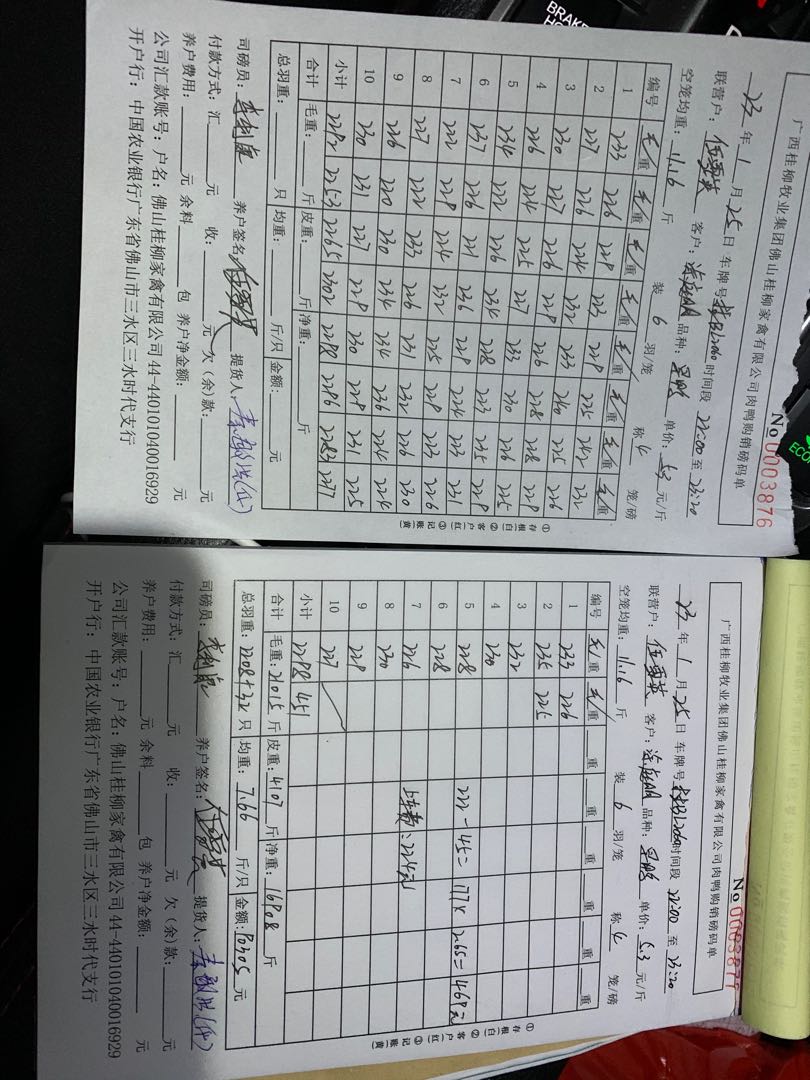 广西桂柳牧业集团佛山桂柳家禽有限公司肉鸭购销磅码单
No 0003876
23 年 1 月 25 日 车牌号 时间段 22:00 至 23:20
联营户: 伍雪英 客户: 品种: 单价: 5.3 元/斤
空笼均重: 11.16 斤 装 6 羽/笼 称 4 笼/磅
编号 毛重 毛重 毛重 毛重 毛重 毛重 毛重 毛重
1 233 226 229 223 229 225 242 232
2 227 226 224 232 233 240 225 226
3 230 227 226 229 226 228 228 229
4 226 224 225 227 233 230 226 225
5 234 222 226 234 228 223 235 229
6 237 226 221 236 229 224 223 231
7 222 229 224 232 225 229 223 226
8 227 222 233 226 231 232 226 230
9 226 220 230 234 224 236 224 224
10 230 231 227 229 230 229 231 225
小计 2292 2253 2265 2302 2288 2296 2283 2277
合计 毛重: 斤 皮重: 斤 净重: 斤
总羽重: 只 均重: 斤/只 金额: 元
①存根(白) ②客户(红) ③记账(黄)
司磅员: 养户签名: 伍雪英 提货人:
付款方式: 汇 元 收: 元 欠(余)款: 元
养户费用: 元 余料 包 养户净金额: 元
公司汇款账号: 户名: 佛山桂柳家禽有限公司 44-440101040016929
开户行: 中国农业银行广东省佛山市三水区三水时代支行
广西桂柳牧业集团佛山桂柳家禽有限公司肉鸭购销磅码单
No 0003877
23 年 1 月 25 日 车牌号 时间段 22:00 至 23:20
联营户: 伍雪英 客户: 品种: 单价: 5.3 元/斤
空笼均重: 11.16 斤 装 6 羽/笼 称 4 笼/磅
编号 毛重 毛重 重 重 重 重 重
1 233 226
2 235 225
3 232
4 230
5 228 222-45=177×2.65=469元
6 228
7 226 上车费:224元
8 230
9 229
10 227
小计 2298 451
合计 毛重: 21015 斤 皮重: 4107 斤 净重: 16908 斤
总羽重: 2208+32 只 均重: 7.66 斤/只 金额: 90305 元
①存根(白) ②客户(红) ③记账(黄)
司磅员: 养户签名: 伍雪英 提货人:
付款方式: 汇 元 收: 元 欠(余)款: 元
养户费用: 元 余料 包 养户净金额: 元
公司汇款账号: 户名: 佛山桂柳家禽有限公司 44-440101040016929
开户行: 中国农业银行广东省佛山市三水区三水时代支行